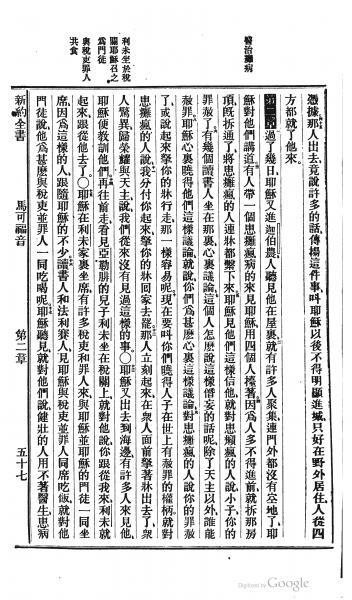 醫治癱病
利未坐於稅
關耶穌召之
爲門徒
與稅吏罪人
共食
憑據那人出去竟說許多的話傳揚這件事叫耶穌以後不得明顯進城只好在野外居住人從四
方都就了他來
第二章過了幾日耶穌又進迦伯農人聽見他在屋裏就有許多人聚集連門外都沒有空地了耶
穌對他們講道有人帶一個患癱瘋病的來見耶穌用四個人擡著因爲人多不得進前就拆那房
頂旣拆通了將患癱瘋的人連牀都繫下來耶穌見他們這樣信他就對患癱瘋的人說小子你的
罪赦了有幾個讀書人坐在那裏心裏議論這個人怎麼說這樣僭妄的話呢除了天主以外誰能
赦罪耶穌心裏曉得他們這樣議論就說你們爲甚麼心裏這樣議論對患癱瘋的人說你的罪赦
了或說起來拏你的牀行走那一樣容易呢現在要叫你們曉得人子在世上有赦罪的權柄就對
患癱瘋的人說我分付你起來拏你的牀回家去罷那人立刻起來在衆人面前拏著牀出去了衆
人驚異歸榮耀與天主說我們從來沒有見過這樣的事○耶穌又出去到海邊有許多人來見他
耶穌便教訓他們再往前走看見亞勒腓的兒子利未坐在稅關上就對他說你跟從我來利未就
起來跟從他去了○耶穌在利未家裏坐席有許多稅吏和罪人來與耶穌並耶穌的門徒一同坐
席因爲這樣的人跟隨耶穌的不少讀書人和法利賽人見耶穌與稅吏並罪人同席吃飯就對他
門徒說他爲甚麼與稅吏並罪人一同吃喝呢耶穌聽見就對他們說健壯的人用不著醫生患病
新約全書
馬可福音
第二章
五十七
Digitized by Google